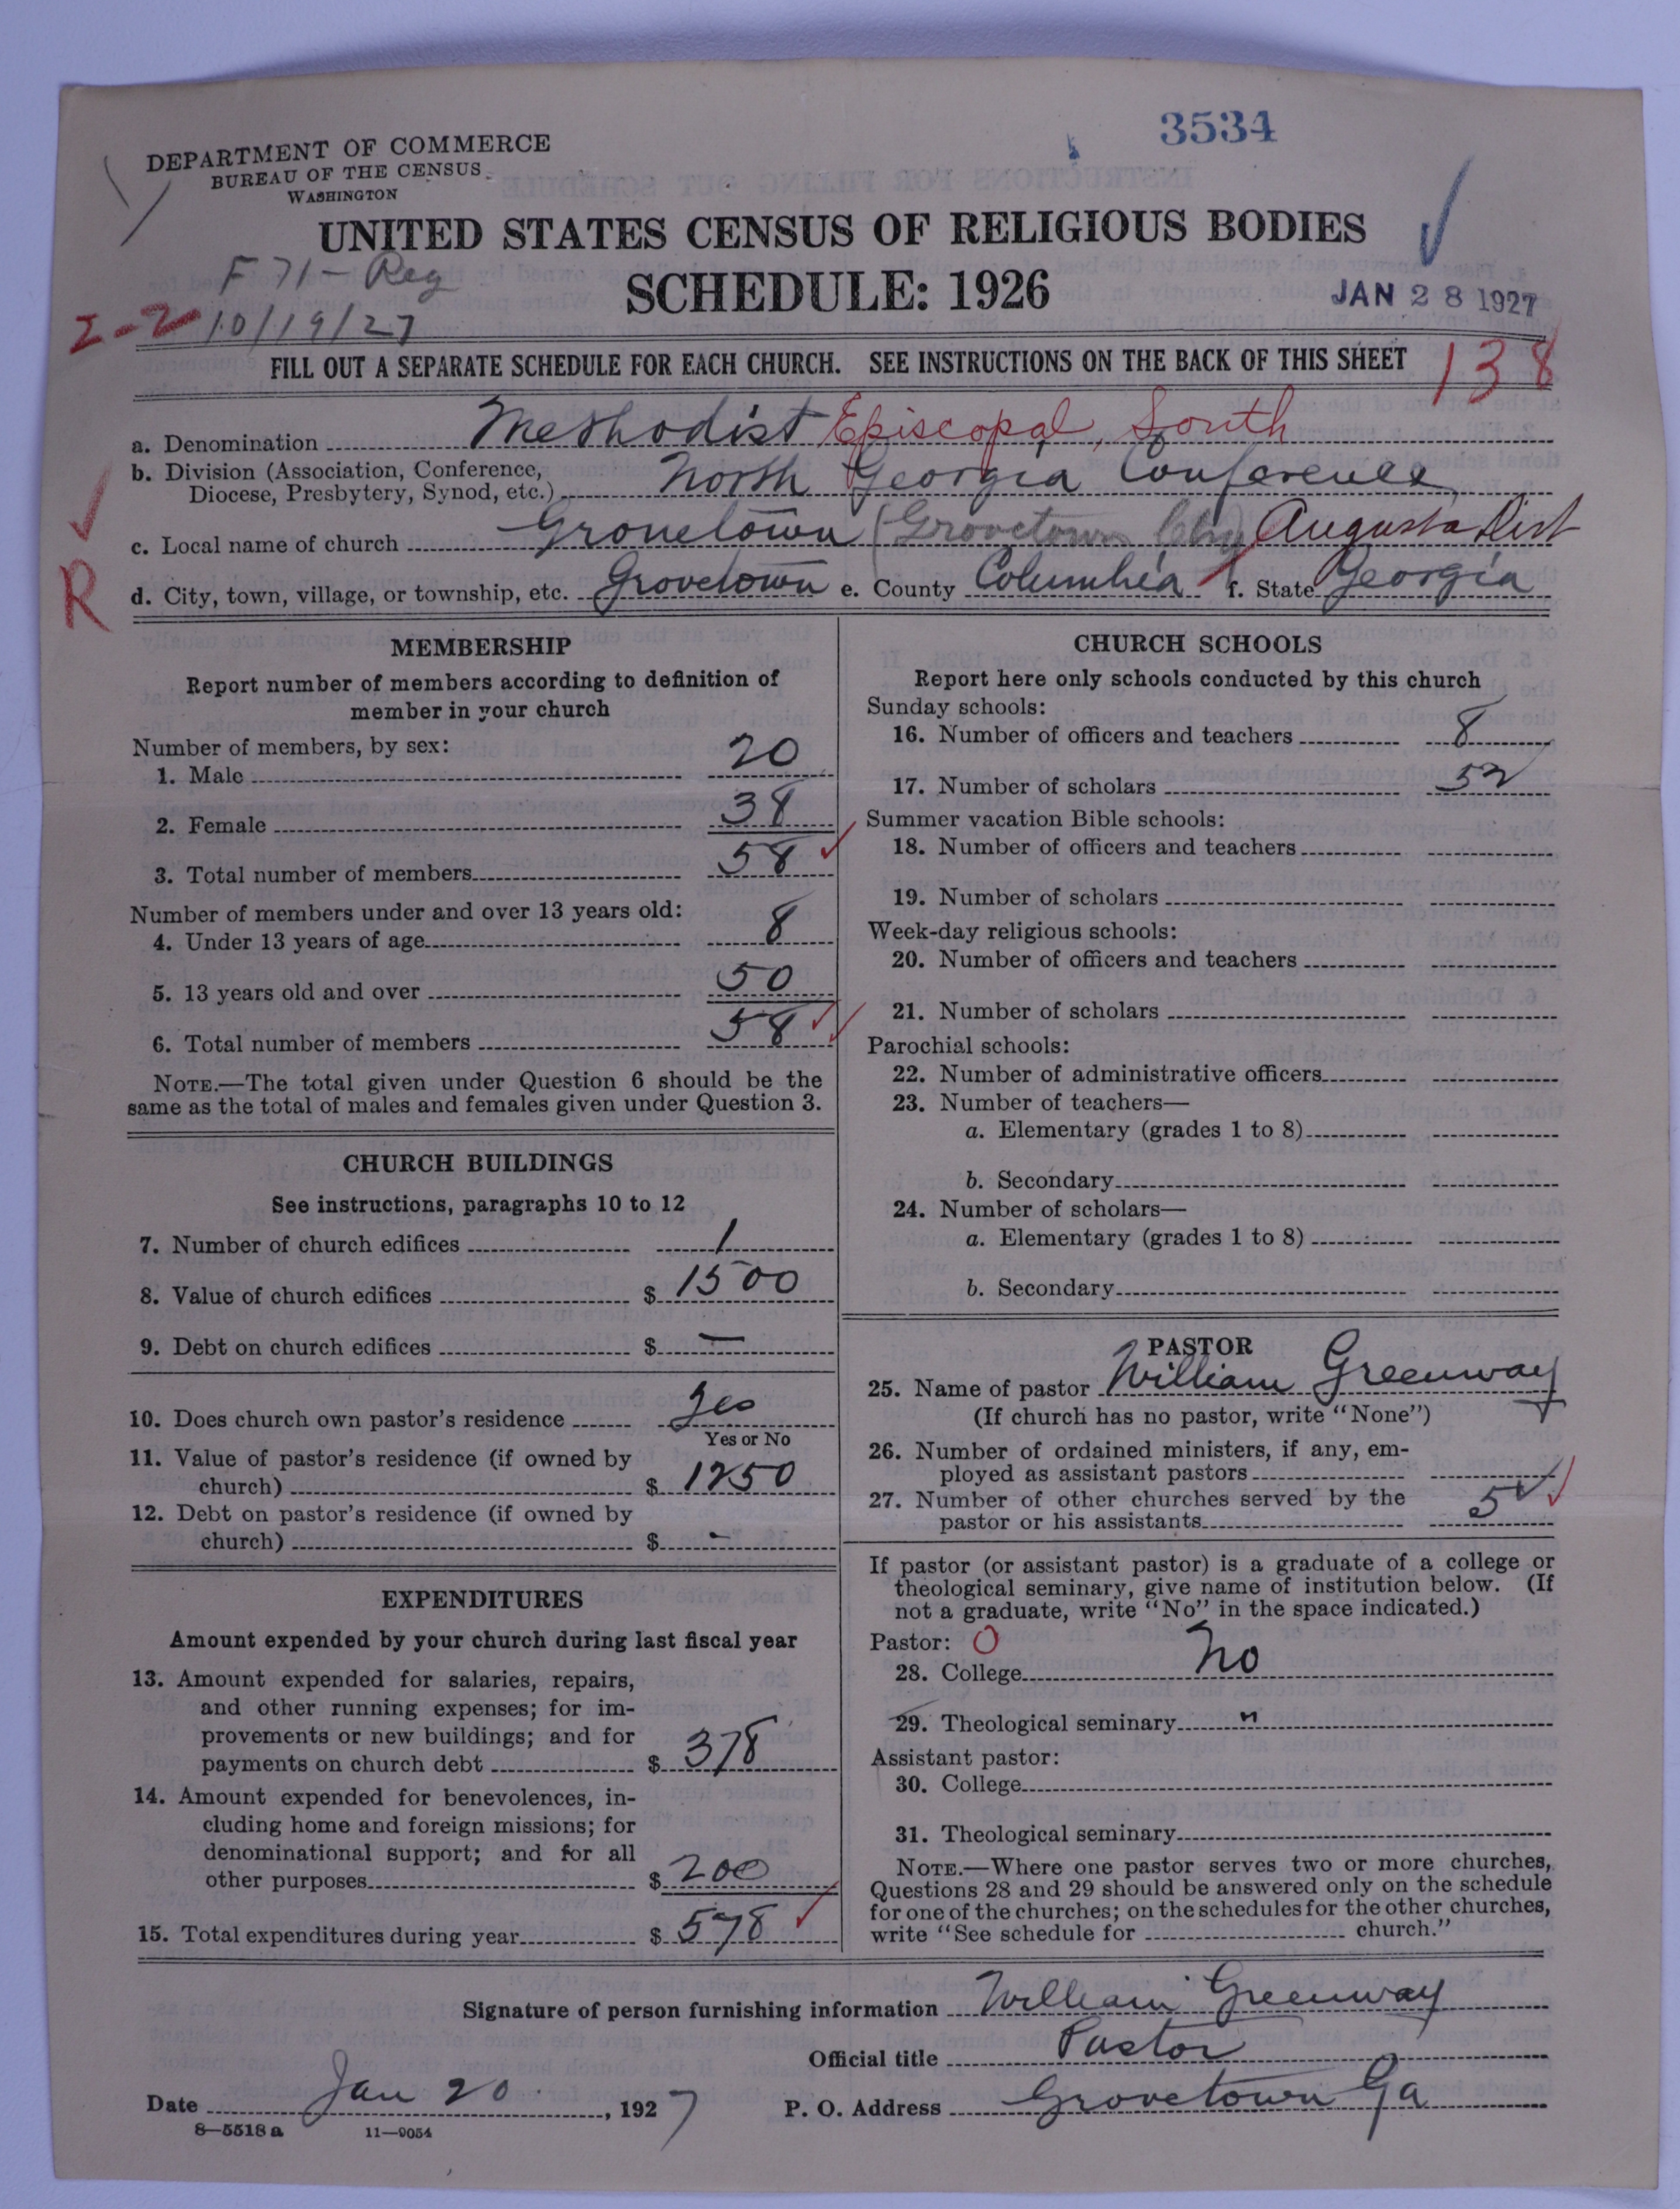 3534
DEPARTMENT OF COMMERCE
BUREAU OF THE CENSUS
WASHINGTON
UNITED STATES CENSUS OF RELIGIOUS BODIES
F 71- Reg
SCHEDULE: 1926
JAN 28 1927
I-2 10/19/27
FILL OUT A SEPARATE SCHEDULE FOR EACH CHURCH. SEE INSTRUCTIONS ON THE BACK OF THIS SHEET
138
a. Denomination Methodist Episcopal, South
b. Division (Association, Conference,
Diocese, Presbytery, Synod, etc.) North Georgia Conference
c. Local name of church Grovetown (Grovetown Chg) Augusta Dist
R
d. City, town, village, or township, etc. Grovetown e. County Columbia f. State Georgia
MEMBERSHIP
Report number of members according to definition of
member in your church
Number of members, by sex:
1. Male 20
2. Female 38
3. Total number of members 58
Number of members under and over 13 years old:
4. Under 13 years of age 8
5. 13 years old and over 50
6. Total number of members 58
NOTE.—The total given under Question 6 should be the
same as the total of males and females given under Question 3.
CHURCH BUILDINGS
See instructions, paragraphs 10 to 12
7. Number of church edifices 1
8. Value of church edifices $ 1500
9. Debt on church edifices $ —
10. Does church own pastor's residence Yes
Yes or No
11. Value of pastor's residence (if owned by
church) $ 1250
12. Debt on pastor's residence (if owned by
church) $ -
EXPENDITURES
Amount expended by your church during last fiscal year
13. Amount expended for salaries, repairs,
and other running expenses; for im-
provements or new buildings; and for
payments on church debt $ 378
14. Amount expended for benevolences, in-
cluding home and foreign missions; for
denominational support; and for all
other purposes $ 200
15. Total expenditures during year $ 578
CHURCH SCHOOLS
Report here only schools conducted by this church
Sunday schools:
16. Number of officers and teachers 8
17. Number of scholars 52
Summer vacation Bible schools:
18. Number of officers and teachers
19. Number of scholars
Week-day religious schools:
20. Number of officers and teachers
21. Number of scholars
Parochial schools:
22. Number of administrative officers
23. Number of teachers—
a. Elementary (grades 1 to 8)
b. Secondary
24. Number of scholars—
a. Elementary (grades 1 to 8)
b. Secondary
PASTOR
25. Name of pastor William Greenway
(If church has no pastor, write "None")
26. Number of ordained ministers, if any, em-
ployed as assistant pastors
27. Number of other churches served by the
pastor or his assistants 5
If pastor (or assistant pastor) is a graduate of a college or
theological seminary, give name of institution below. (If
not a graduate, write "No" in the space indicated.)
Pastor: O
28. College No
29. Theological seminary "
Assistant pastor:
30. College
31. Theological seminary
NOTE.—Where one pastor serves two or more churches,
Questions 28 and 29 should be answered only on the schedule
for one of the churches; on the schedules for the other churches,
write "See schedule for church."
Signature of person furnishing information William Greenway
Official title Pastor
Date Jan 20, 1927 P. O. Address Grovetown Ga
8—5518 a 11—9054